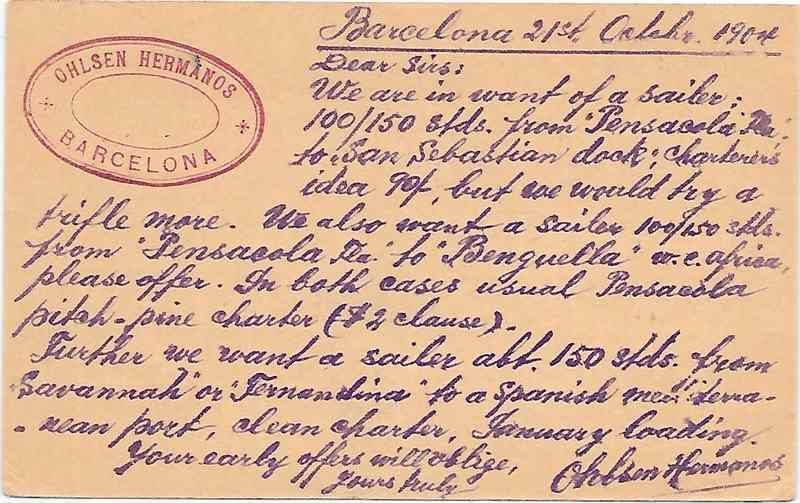 OHLSEN HERMANOS
BARCELONA
Barcelona 21st. Octbr. 1904
Dear Sirs:
We are in want of a sailer;
100/150 stds. from "Pensacola Fla."
to "San Sebastian dock"; charterer's
idea 90/, but we would try a
trifle more. We also want a sailer 100/150 stds.
from "Pensacola Fla." to "Benguella" w.c. africa,
please offer. In both cases usual Pensacola
pitch-pine charter (#2 clause).-
Further we want a sailer abt. 150 stds. from
"Savannah" or "Fernandina" to a Spanish mediterra-
-nean port, clean charter, January loading.
Your early offers will oblige,
Yours truly
Ohlsen Hermanos